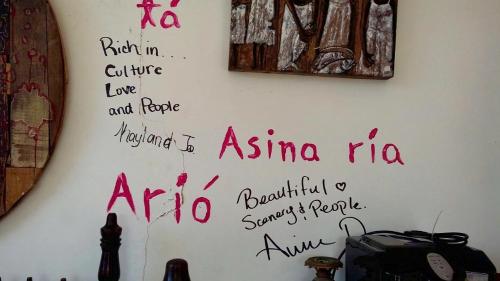 tá
Rich in....
Culture
Love
and People
Asina ría
Arió
Beautiful ♡
Scenery & People.